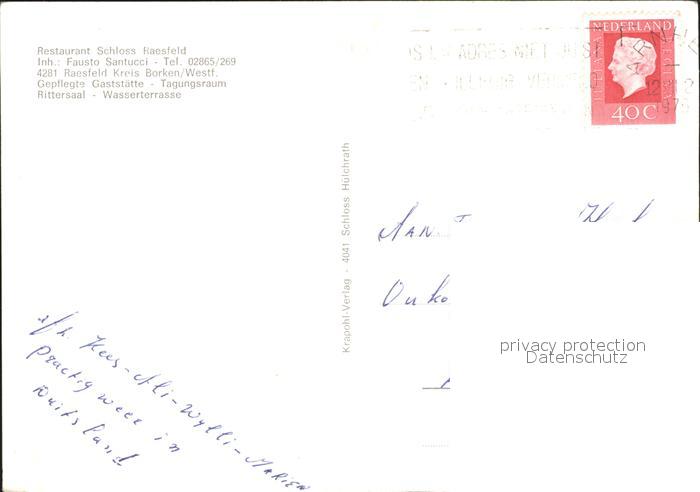 Restaurant Schloss Raesfeld
Inh.: Fausto Santucci - Tel. 02865/269
4281 Raesfeld Kreis Borken/Westf.
Gepflegte Gaststätte - Tagungsraum
Rittersaal - Wasserterrasse
NEDERLAND
JULIANA REGINA
40 C
ARNHE
1 - ADRES MET JUIST
Krapohl-Verlag - 4041 Schloss Hülchrath
AAN
privacy protection
Datenschutz
Kees - Ali - Wylli - MARIEN
Prachtig weer in
Duitsland